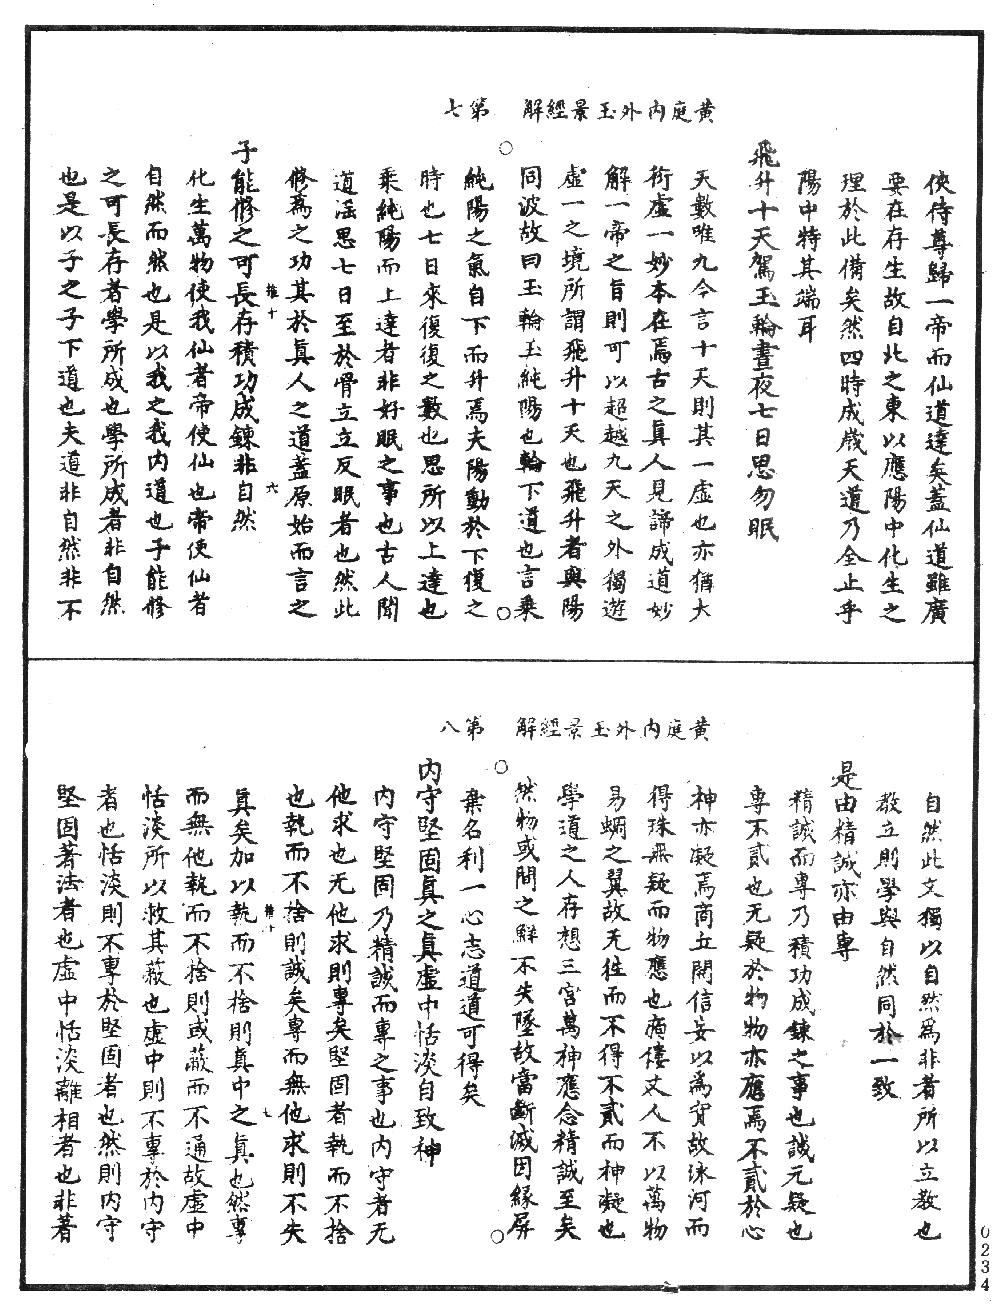 黄庭内外玉景經解　第七
使侍尊歸一帝而仙道達矣蓋仙道雖廣
要在存生故自此之東以應陽中化生之
理於此備矣然四時成歲天道乃全止乎
陽中特其端耳
飛升十天駕玉輪晝夜七日思勿眠
天數唯九今言十天則其一虛也亦猶大
衍虛一妙本在焉古之真人見諦成道妙
解一帝之旨則可以超越九天之外獨遊
虛一之境所謂飛升十天也飛升者與陽
同波故曰玉輪玉純陽也輪下道也言乘
純陽之氣自下而升焉夫陽動於下復之
時也七日來復復之數也思所以上達也
乘純陽而上達者非好眠之事也古人聞
道滛思七日至於骨立立反眠者也然此
修爲之功其於眞人之道蓋原始而言之
子能修之可長存積功成鍊非自然
化生萬物使我仙者帝使仙也帝使仙者
自然而然也是以我之我内道也子能修
之可長存者學所成也學所成者非自然
也是以子之子下道也夫道非自然非不
六
黄庭内外玉景經解　第八
自然此文獨以自然爲非者所以立教也
教立則學與自然同於一致
是由精誠亦由專
精誠而專乃積功成鍊之事也誠无疑也
專不貳也无疑於物物亦應焉不貳於心
神亦凝焉商丘開信妄以爲實故泳河而
得珠無疑而物應也痀僂丈人不以萬物
易蜩之翼故无往而不得不貳而神凝也
學道之人存想三宮萬神應念精誠至矣
然物或間之鮮不失墜故當斷滅因緣屏
棄名利一心志道道可得矣
内守堅固真之真虛中恬淡自致神
内守堅固乃精誠而專之事也内守者无
他求也无他求則專矣堅固者執而不捨
也執而不捨則誠矣專而無他求則不失
真矣加以執而不捨則真中之真也然專
而無他執而不捨則或蔽而不通故虛中
恬淡所以救其蔽也虛中則不專於内守
者也恬淡則不專於堅固者也然則内守
堅固著法者也虛中恬淡離相者也非著
七
0234